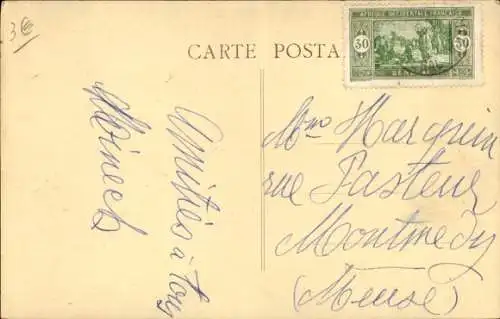 3€
CARTE POSTA
AFRIQUE OCCIDENTALE FRANÇAISE
30 30
Amitiés à tous
Mme Marquin
rue Pasteur
Montmedy
(Meuse)